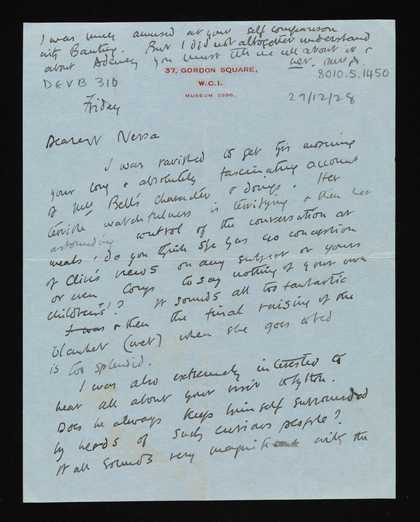 I was much amused at your self comparison
with Bunting. But I did not altogether understand
about you must tell me all about it &
her.
37, GORDON SQUARE,
W.C.1.
MUSEUM
DEVB 310
8010.5.1450
Friday
29/12/28
Dearest Nessa
I was ravished to get this morning
your long & absolutely fascinating account
of Mrs Bell's character & doings. Her
watchfulness is terrifying & then her
astounding control of the conversation at
meals. Do you think she has no conception
of Clive's views on any subject or yours
or even to say nothing of your own
children's!? It sounds all too fantastic
& then the final raising of the
blanket (wet) when she goes to bed
is too splendid.
I was also extremely interested to
hear all about your visit to Lytton.
Does he always keep himself surrounded
by herds of such curious people?
It all sounds very with the